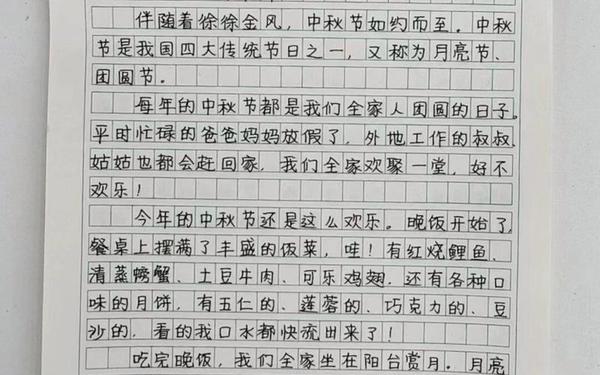 伴随着徐徐金风，中秋节如约而至。中秋
节是我国四大传统节日之一，又称为月亮节、
团圆节。
每年的中秋节都是我们全家人团圆的日子。
平时忙碌的爸爸妈妈放假了，外地工作的叔叔、
姑姑也都会赶回家，我们全家欢聚一堂，好不
欢乐！
今年的中秋节还是这么欢乐。晚饭开始了，
餐桌上摆满了丰盛的饭菜，哇！有红烧鲤鱼、
清蒸螃蟹、土豆牛肉、可乐鸡翅，还有各种口
味的月饼，有五仁的、莲蓉的、巧克力的、豆
沙的，看的我口水都快流出来了！
吃完晚饭，我们全家坐在阳台赏月。月亮